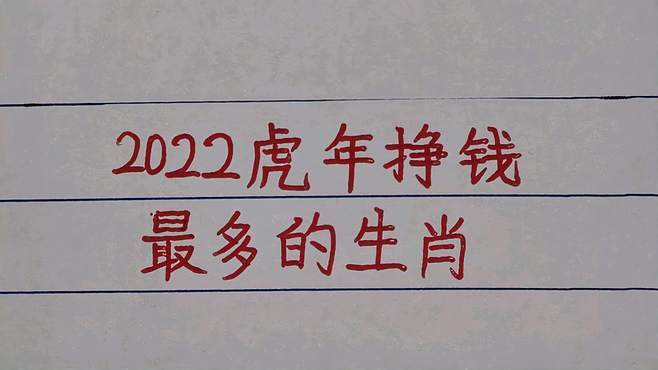 2022虎年挣钱
最多的生肖